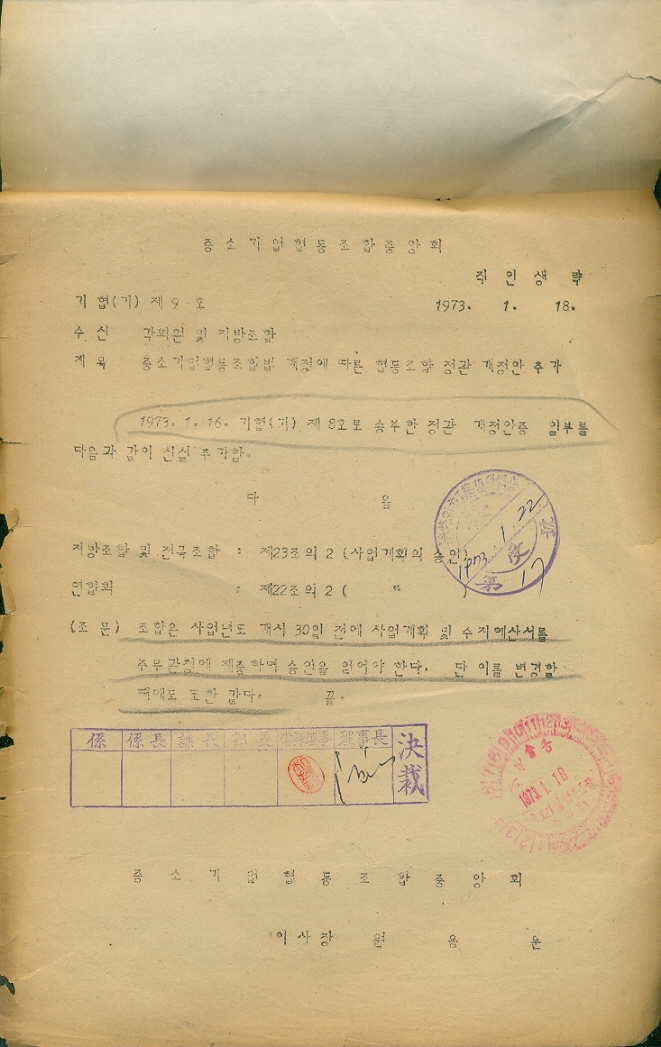 중소기업협동조합중앙회
직인생략
기협(기) 제 9 호 1973. 1. 18.
수신 각회원 및 지방조합
제목 중소기업협동조합법 개정에 따른 협동조합 정관 개정안 추가
1973. 1. 16. 기협(기) 제 8호로 송부한 정관 개정안중 일부를
다음과 같이 신설 추가함.
다 음
지방조합 및 전국조합 : 제23조의 2 (사업계획의 승인)
연합회 : 제22조의 2 ( " )
(조 문) 조합은 사업년도 개시 30일 전에 사업계획 및 수지예산서를
주무관청에 제출하여 승인을 얻어야 한다. 단 이를 변경할
때에도 또한 같다. 끝.
1973 1. 22
第 17
係 係長 課長 部長 常務理事 理事長 決裁
1973. 1. 18
중 소 기 업 협 동 조 합 중 앙 회
이사장 원 용